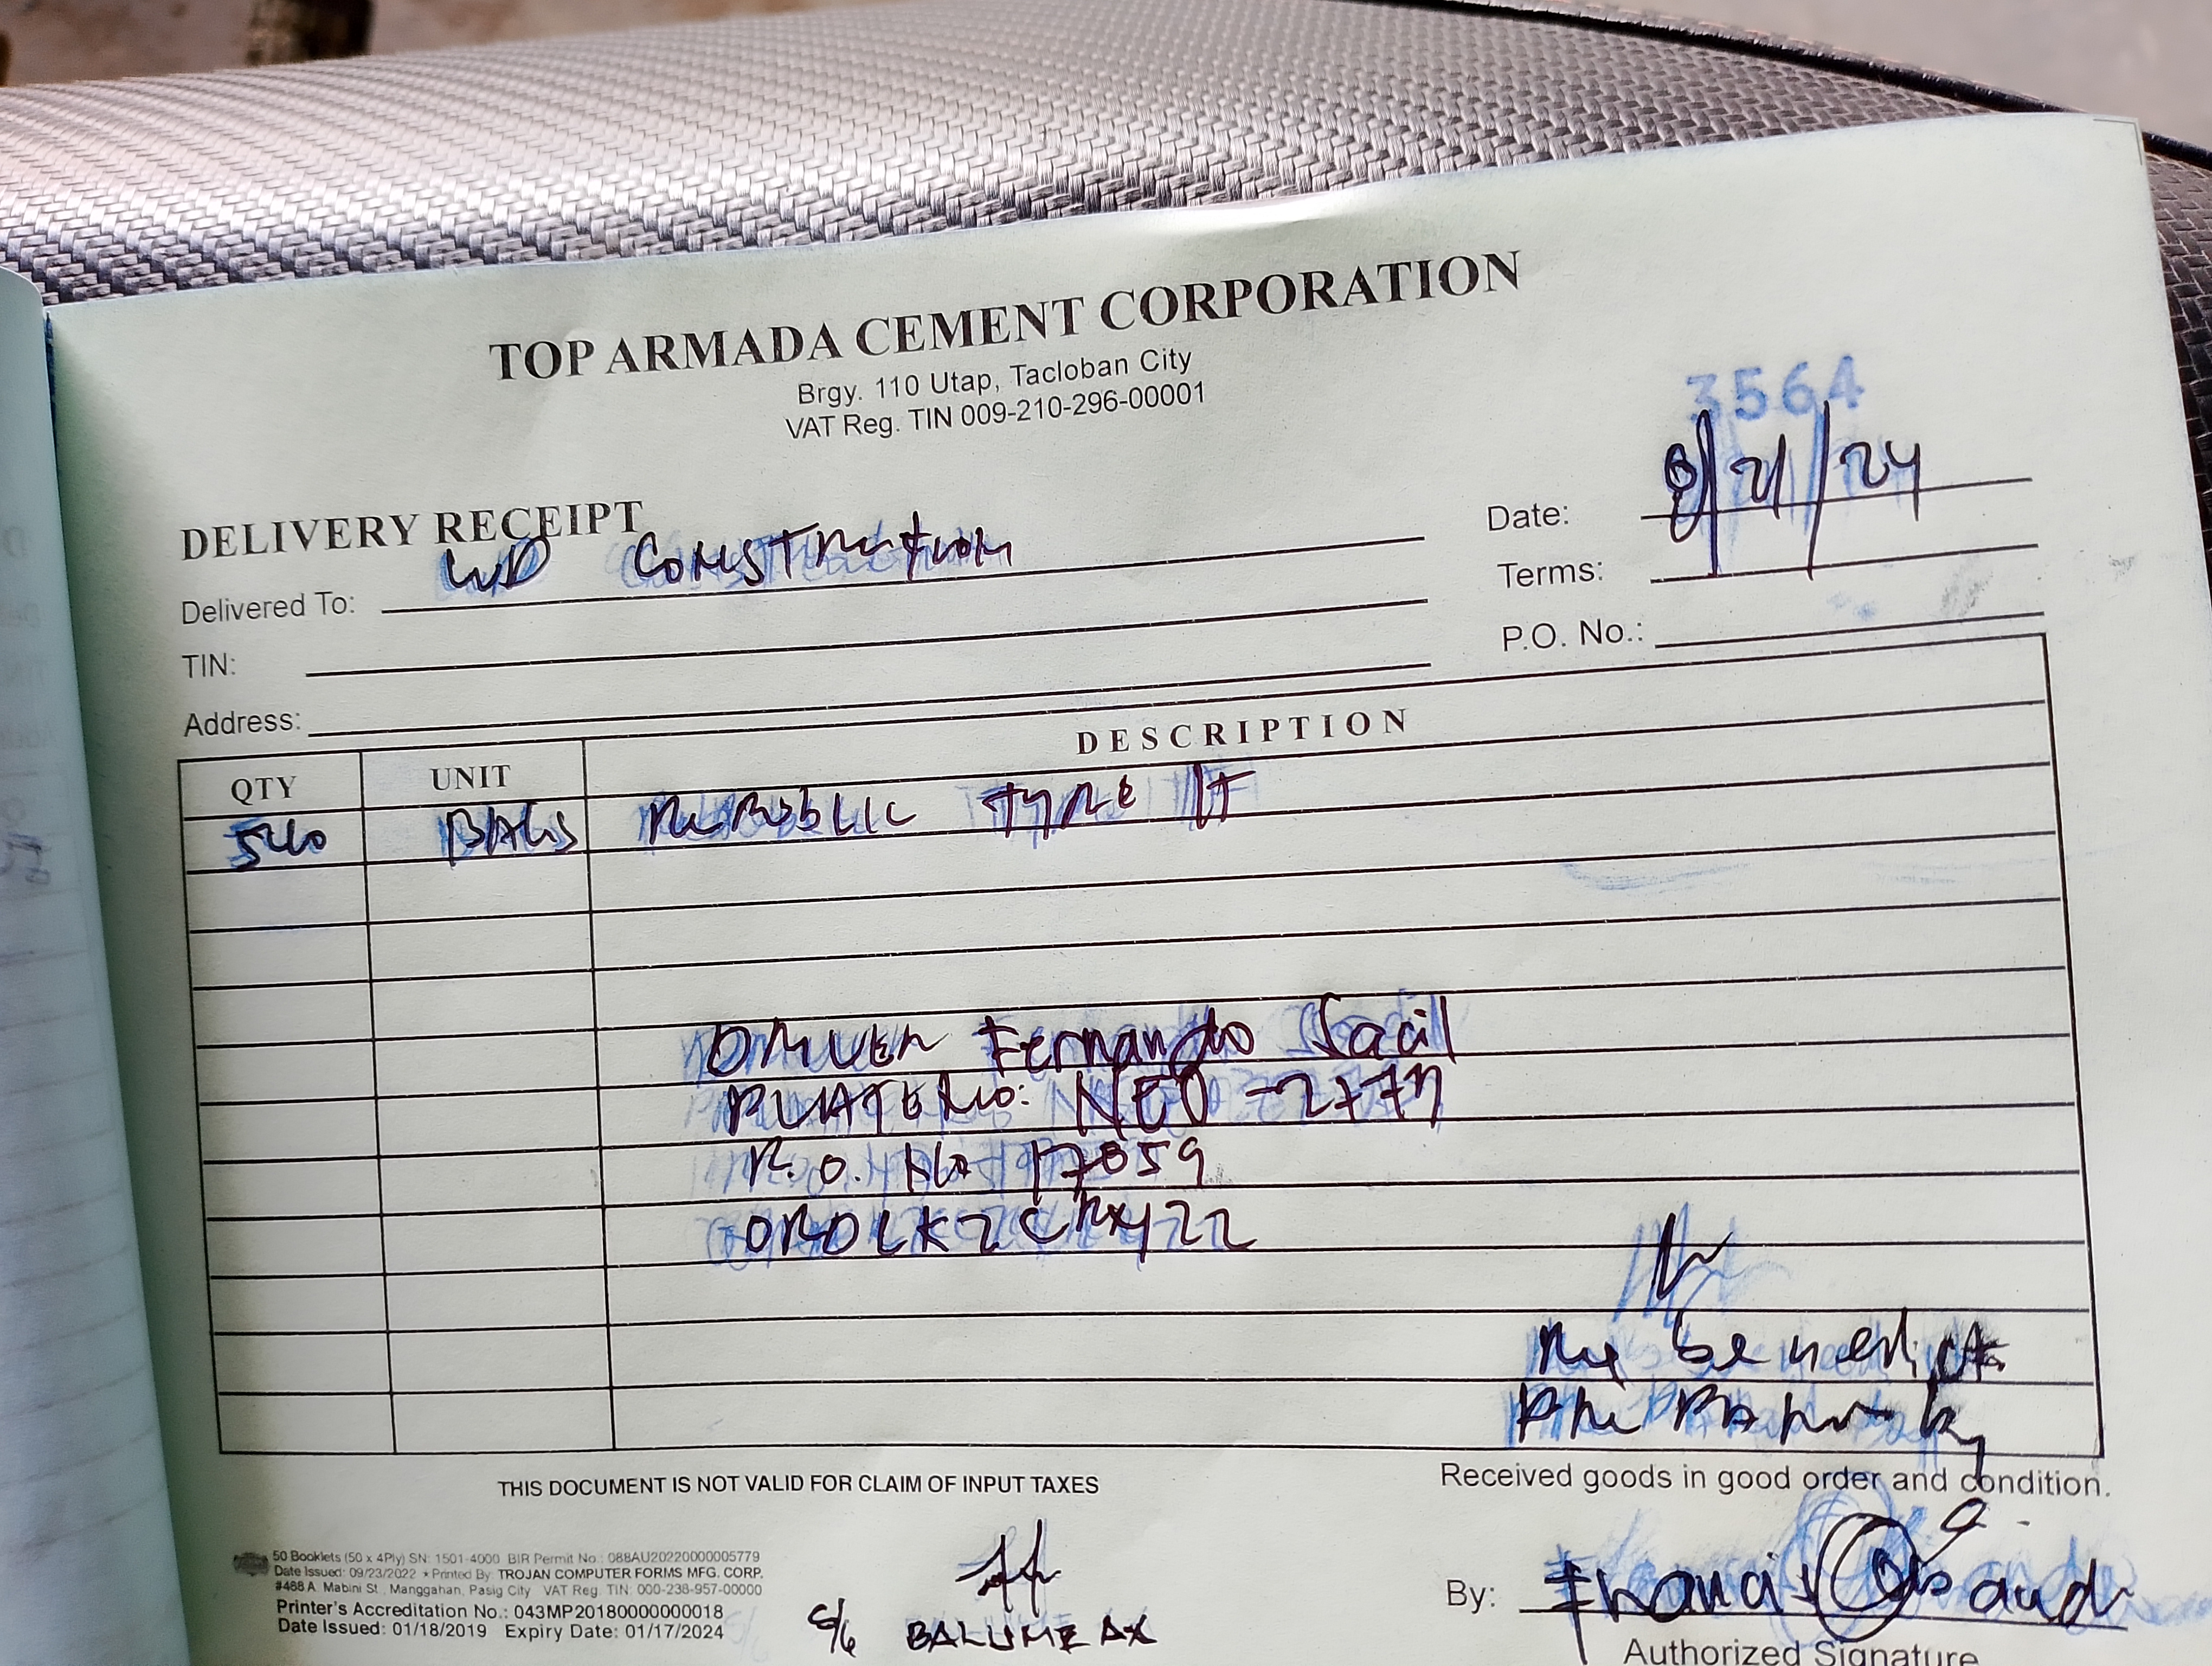 TOP ARMADA CEMENT CORPORATION
Brgy. 110 Utap, Tacloban City
VAT Reg. TIN 009-210-296-00001
3564
DELIVERY RECEIPT
Date: 8/21/24
Delivered To: WD Construction
Terms:
TIN:
P.O. No.:
Address:
QTY UNIT DESCRIPTION
540 BAGS REPUBLIC TYPE 1T
DRIVER Fernando Sacil
PLATE No: NEO-2773
P.O. No 17859
benedict
THIS DOCUMENT IS NOT VALID FOR CLAIM OF INPUT TAXES
Received goods in good order and condition.
50 Booklets (50 x 4Ply) SN: 1501-4000 BIR Permit No.: 088AU20220000005779
Date Issued: 09/23/2022 * Printed By: TROJAN COMPUTER FORMS MFG. CORP.
#488 A. Mabini St., Manggahan, Pasig City VAT Reg. TIN: 000-238-957-00000
Printer's Accreditation No.: 043MP20180000000018
Date Issued: 01/18/2019 Expiry Date: 01/17/2024
By: Francis
Authorized Signature